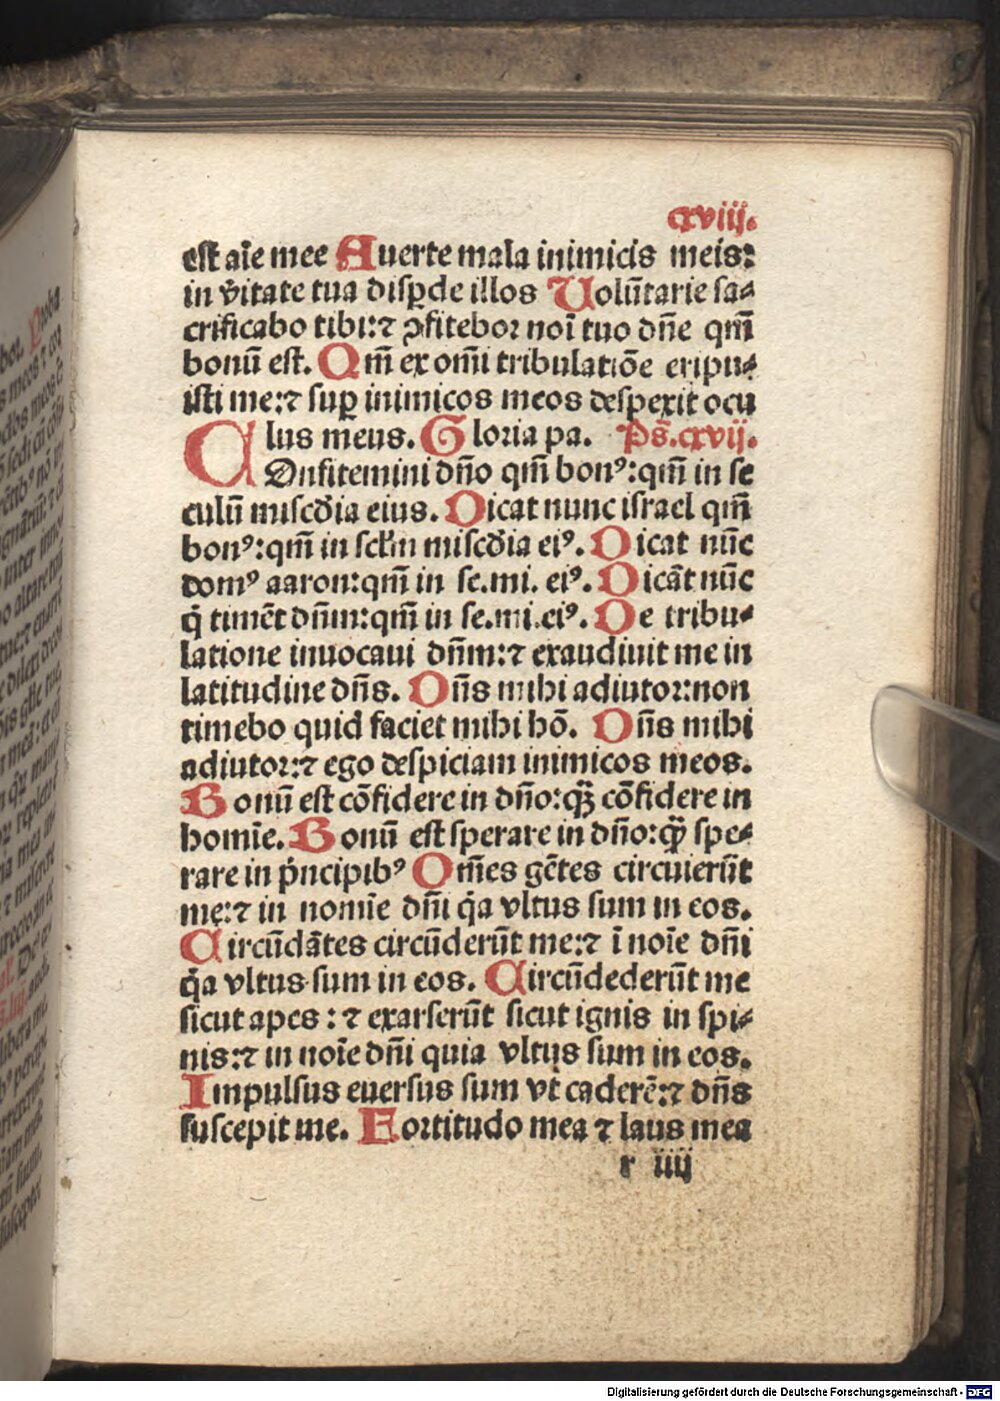 cxviij.
est aīe mee Auerte mala inimicis meis:
in v̄itate tua disꝑde illos Volūtarie sa⸗
crificabo tibi:⁊ ꝯfitebor noī tuo dn̄e qm̄
bonū est. Qm̄ ex om̄i tribulatiōe eripu⸗
isti me:⁊ suꝑ inimicos meos despexit ocu
lus meus. Gloria pa. Ps̄.cxvij.
COnfitemini dn̄o qm̄ bonꝰ:qm̄ in se
culū mīsc̄dia eius. Dicat nunc israel qm̄
bonꝰ:qm̄ in sctm̄ misc̄dia eiꝰ. Dicat nūc
domꝰ aaron:qm̄ in se.mi. eiꝰ. Dicāt nūc
q̇ timēt dn̄m:qm̄ in se.mi.eiꝰ. De tribu⸗
latione inuocaui dn̄m:⁊ exaudiuit me in
latitudine dn̄s. Dn̄s mihi adiutor:non
timebo quid faciet mihi hō. Dn̄s mihi
adiutor:⁊ ego despiciam inimicos meos.
Bonū est cōfidere in dn̄o:qꝫ̄ cōfidere in
homīe. Bonū est sperare in dn̄o:qꝫ̄ spe⸗
rare in pͥncipibꝰ Om̄es gētes circuierūt
me:⁊ in nomīe dn̄i qͥa vltus sum in eos.
Circūdātes circūderūt me:⁊ ī noīe dn̄i
qͥa vltus sum in eos. Circūdederūt me
sicut apes : ⁊ exarserūt sicut ignis in spi⸗
nis:⁊ in noīe dn̄i quia vltus sum in eos.
Impulsus euersus sum vt caderē:⁊ dn̄s
suscepit me. Fortitudo mea ⁊ laus mea
r iiij
Digitalisierung gefördert durch die Deutsche Forschungsgemeinschaft - DFG